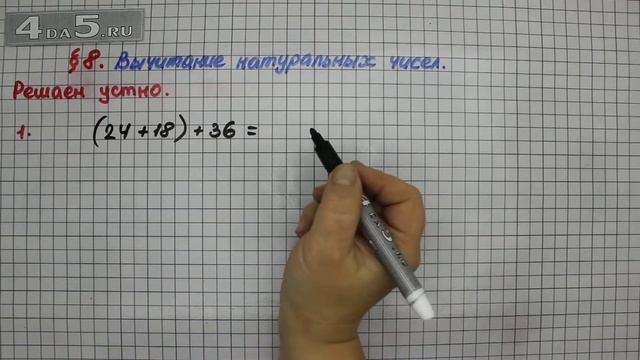 4DA5.RU
§8. Вычитание натуральных чисел.
Решаем устно.
1. (24+18)+36=